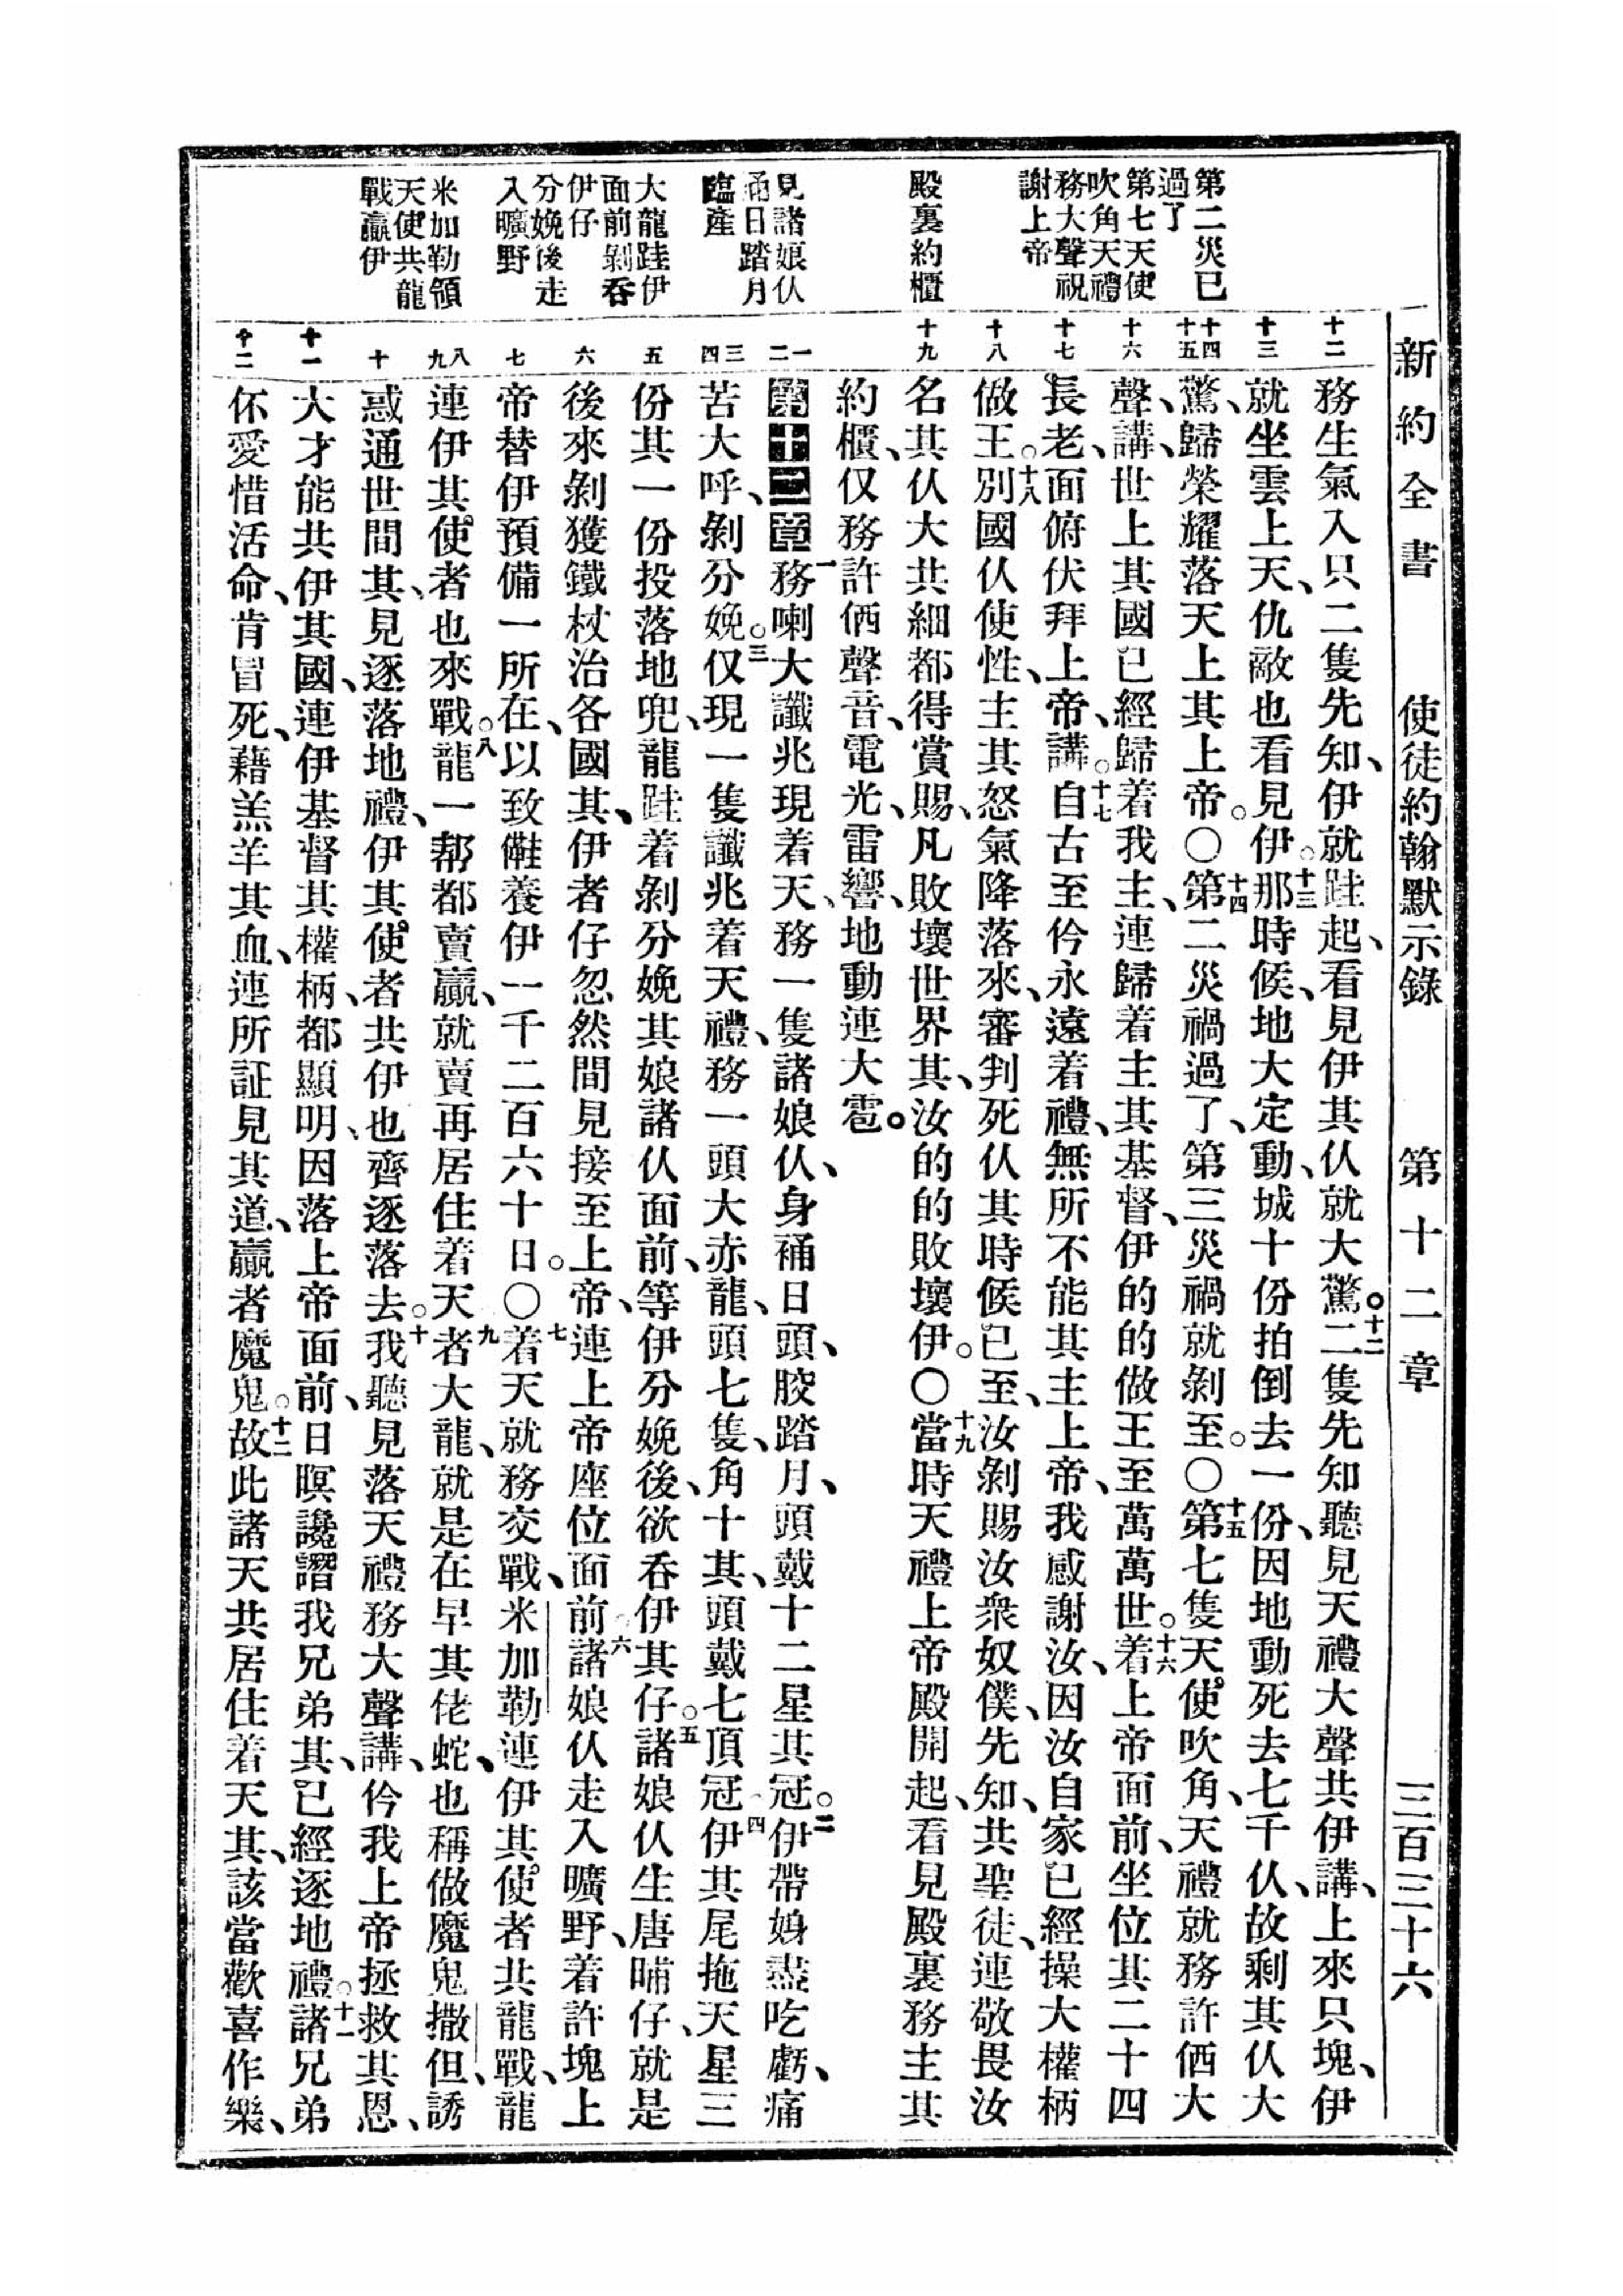 新約全書 使徒約翰默示錄 第十二章 三百三十六
第二災已
過了
第七天使
吹角天禮
務大聲祝
謝上帝
殿裏約櫃
見諸娘仈
涌日踏月
臨產
大龍跬伊
面前剝吞
伊仔
分娩後走
入曠野
米加勒領
天使共龍
戰贏伊
十二
十三
十四
十五
十六
十七
十八
十九
一
二
三
四
五
六
七
八
九
十
十一
十二
務生氣入只二隻先知、伊就跬起、看見伊其仈就大驚。十二二隻先知聽見天禮大聲共伊講、上來只塊、伊
就坐雲上天、仇敵也看見伊。十三那時候、地大定動、城十份拍倒去一份、因地動死去七千仈、故剩其仈大
驚、歸榮耀落天上其上帝。〇十四第二災禍過了、第三災禍就剝至。〇十五第七隻天使吹角、天禮就務許價大
聲、講、世上其國已經歸着我主、連歸着主其基督、伊的的做王至萬萬世。十六着上帝面前、坐位其二十四
長老、面俯伏拜上帝、講。十七自古至仱永遠着禮、無所不能其主上帝、我感謝汝、因汝自家已經操大權柄
做王。十八別國仈使性、主其怒氣降落來、審判死仈其時候已至、汝剝賜汝衆奴僕、先知、共聖徒、連敬畏汝
名其仈大共細都得賞賜、凡敗壞世界其、汝的的敗壞伊。〇十九當時天禮上帝殿開起、看見殿裏務主其
約櫃、仅務許価聲音、電光、雷響、地動連大雹。
第十二章一務喇大讖兆現着天、務一隻諸娘仈、身涌日頭、骹踏月、頭戴十二星其冠。二伊帶娠盡吃虧、痛
苦大呼、剝分娩。三仅現一隻讖兆着天禮、務一頭大赤龍、頭七隻、角十其、頭戴七頂冠四伊其尾拖天星三
份其一份投落地兜、龍跬着剝分娩其娘諸仈面前、等伊分娩後、欲吞伊其仔。五諸娘仈生唐晡仔、就是
後來剝獲鐵杖治各國其、伊者仔忽然間見接至上帝、連上帝座位面前六諸娘仈走入曠野、着許塊上
帝替伊預備一所在、以致𠆧養伊一千二百六十日。〇七着天就務交戰、米加勒連伊其使者共龍戰、龍
連伊其使者也來戰。八龍一幫都賣贏、就賣再居住着天九者大龍、就是在早其佬蛇、也稱做魔鬼撒但、誘
惑通世間其、見逐落地禮、伊其使者共伊也齊逐落去。十我聽見落天禮務大聲講、仱我上帝拯救其恩、
大才能共伊其國、連伊基督其權柄、都顯明、因落上帝面前、日暝讒譖我兄弟其、已經逐地禮。十一諸兄弟
伓愛惜活命、肯冒死、藉羔羊其血、連所証見其道、贏者魔鬼。十二故此諸天共居住着天其、該當歡喜作樂、